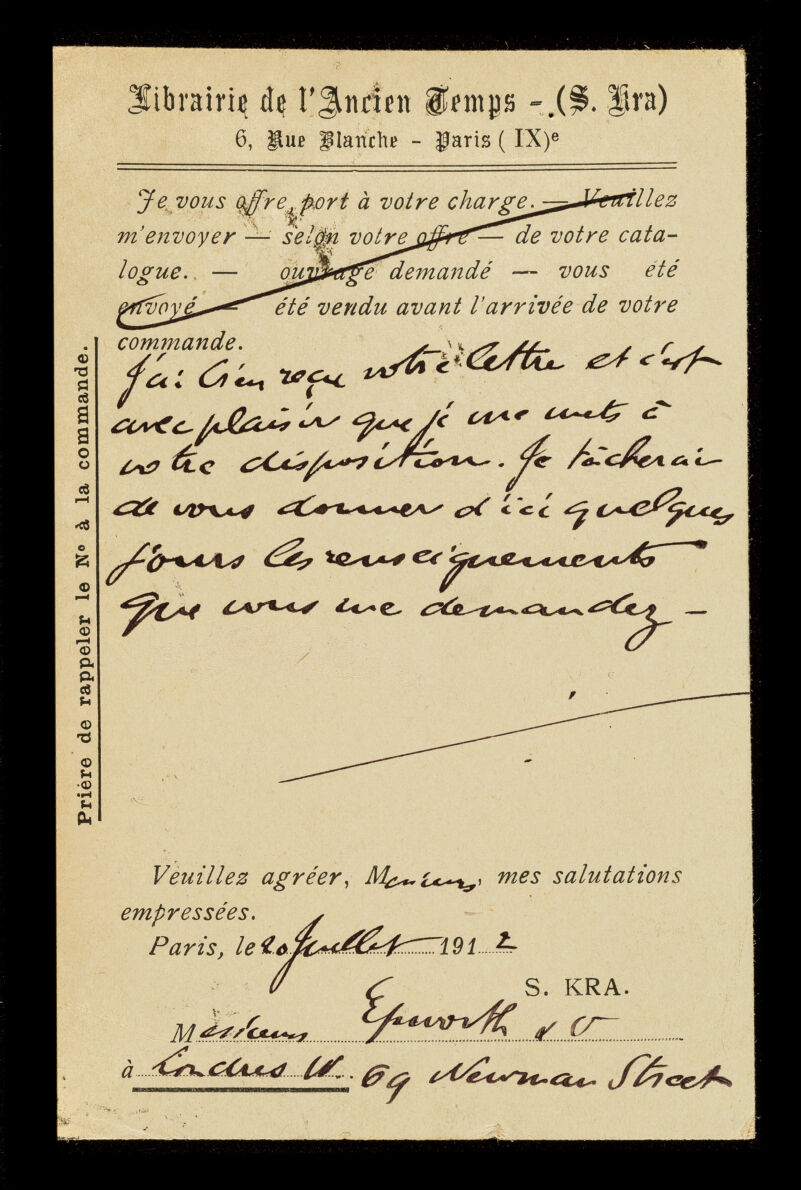 Librairie de l'Ancien Temps - (S. Kra)
6, Rue Blanche - Paris ( IX)e
Je vous offre, port à votre charge. — Veuillez
m'envoyer — selon votre offre — de votre cata-
logue. — ouvrage demandé — vous été
envoyé — été vendu avant l'arrivée de votre
commande.
J'ai bien reçu votre lettre et c'est
avec plaisir que je me mets à
votre disposition. Je tâcherai
de vous donner d'ici quelques
jours les renseignements
que vous me demandez —
Prière de rappeler le No à la commande.
Veuillez agréer, Messieurs, mes salutations
empressées.
Paris, le 20 Juillet 1912
S. KRA.
Messieurs Epworth &
à Londres W. 69 Newman Street